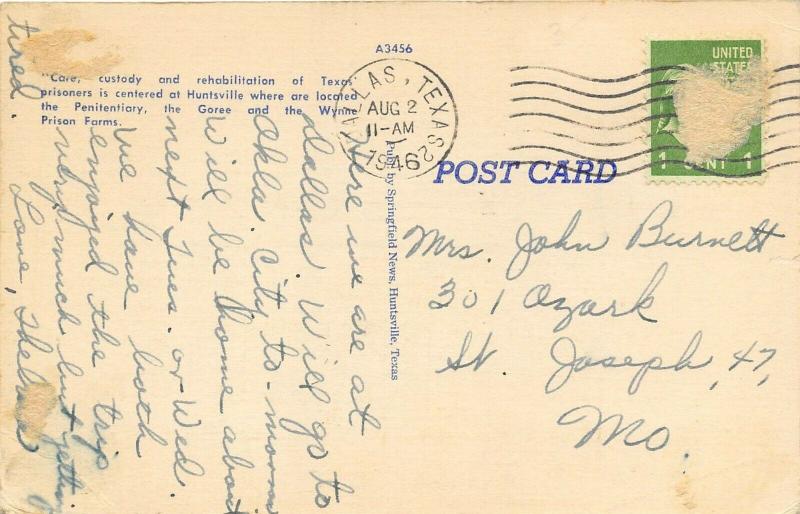 A3456
"Care, custody and rehabilitation of Texas
prisoners is centered at Huntsville where are located
the Penitentiary, the Goree and the Wynne
Prison Farms.
DALLAS, TEXAS 2
AUG 2
11-AM
1946
UNITED
STATES
1 CENT 1
POST CARD
Publ. by Springfield News, Huntsville, Texas
Here we are at
Dallas. Will go to
Okla. City to-morrow
Will be home about
next Tues. or Wed.
We have both
enjoyed the trip
very much but getting
tired.
Love, Thelma
Mrs. John Burnett
301 Ozark
St. Joseph, 47,
Mo.